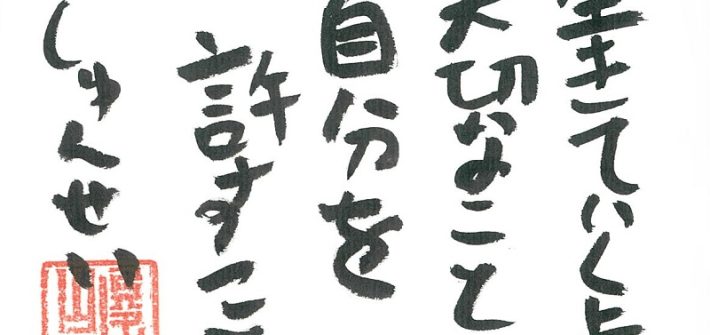 生きていく上
大切なこと
自分を
許すこ
しゅんせい